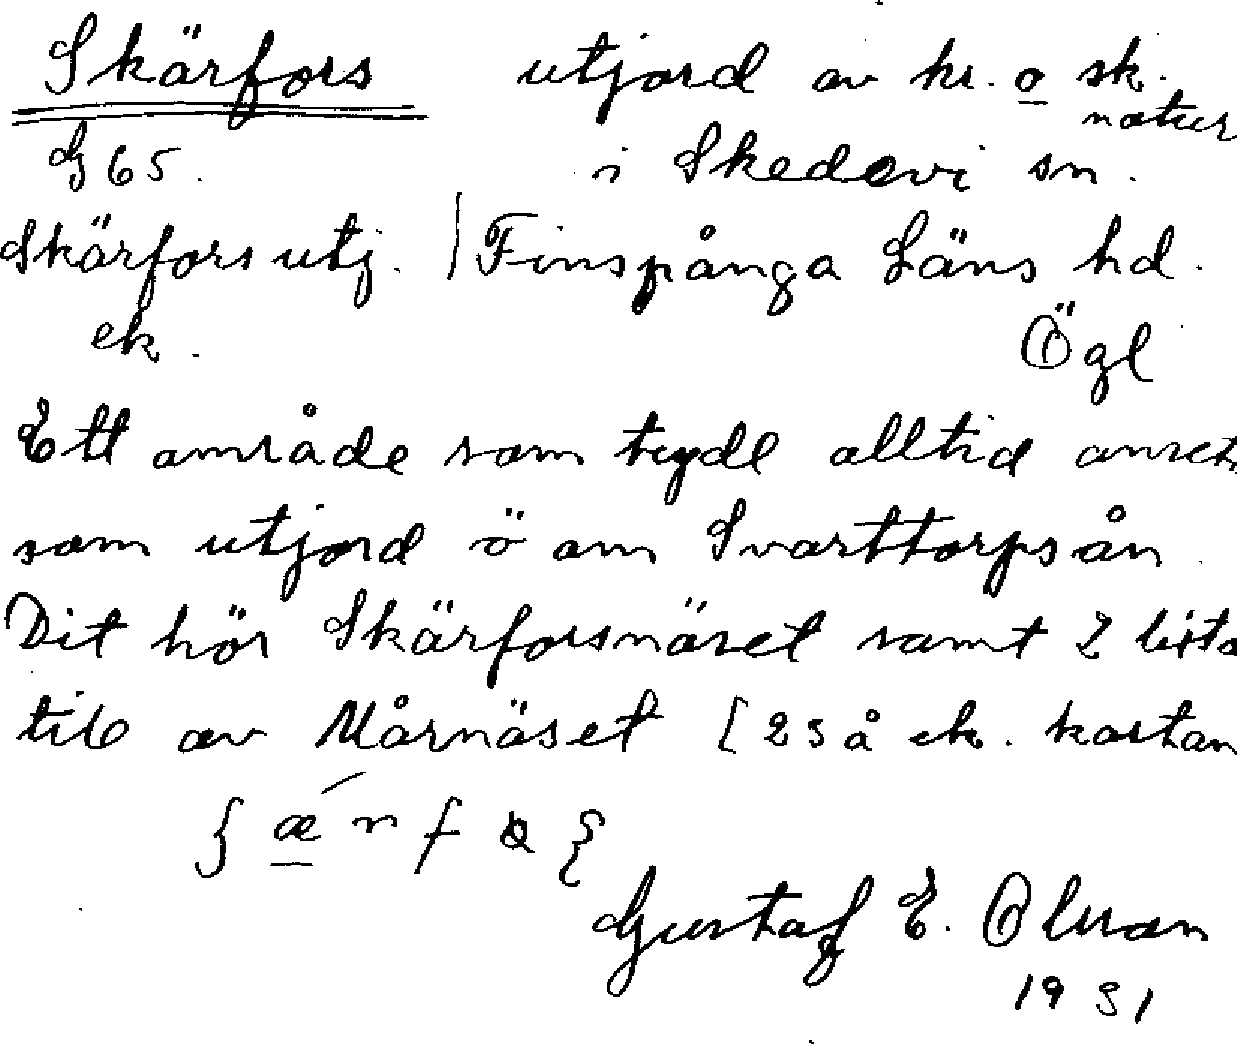 Skärfors utjord av kr. o sk. natur
G 65. i Skedevi sn.
Skärfors utj. | Finspånga Läns hd.
ek. Ögl
Ett område som tydl alltid ansets
som utjord ö om Svarttorpsån.
Dit hör Skärforsnäset samt 2 bita
till av Mårnäset [ 2 s å ek. kartan
Gustaf E. Olsson
1931